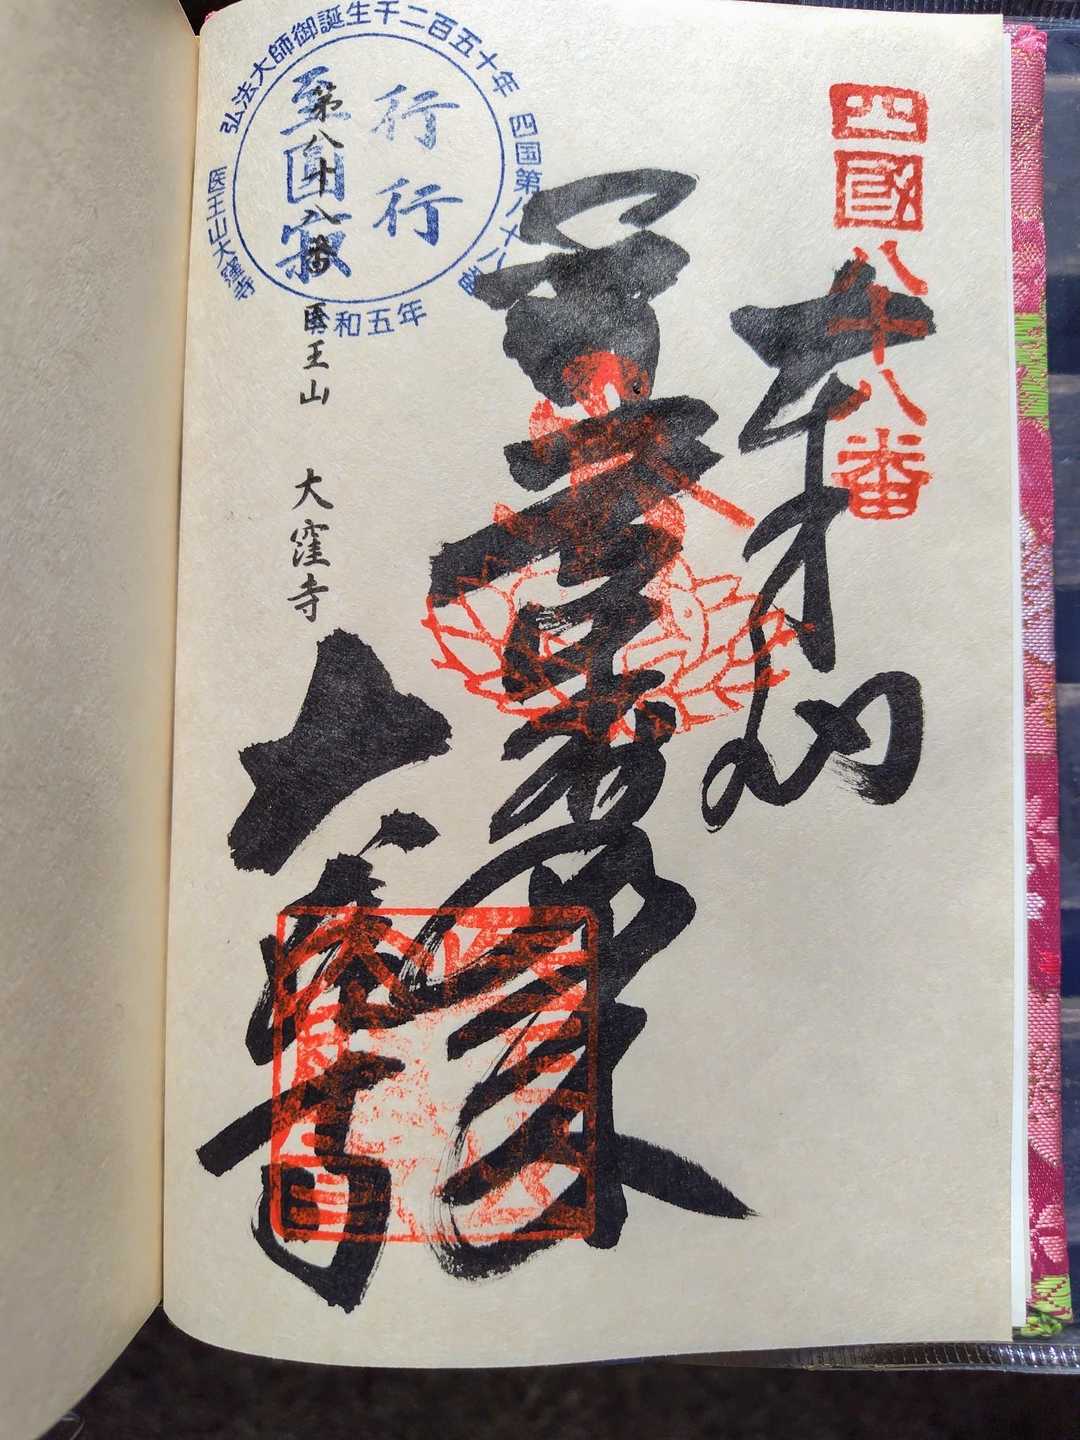 四國八十八番
奉納
薬師如来
大窪寺
弘法大師御誕生千二百五十年
四国第八十八番
令和五年
医王山大窪寺
行行
至圓寂
第八十八番 医王山 大窪寺